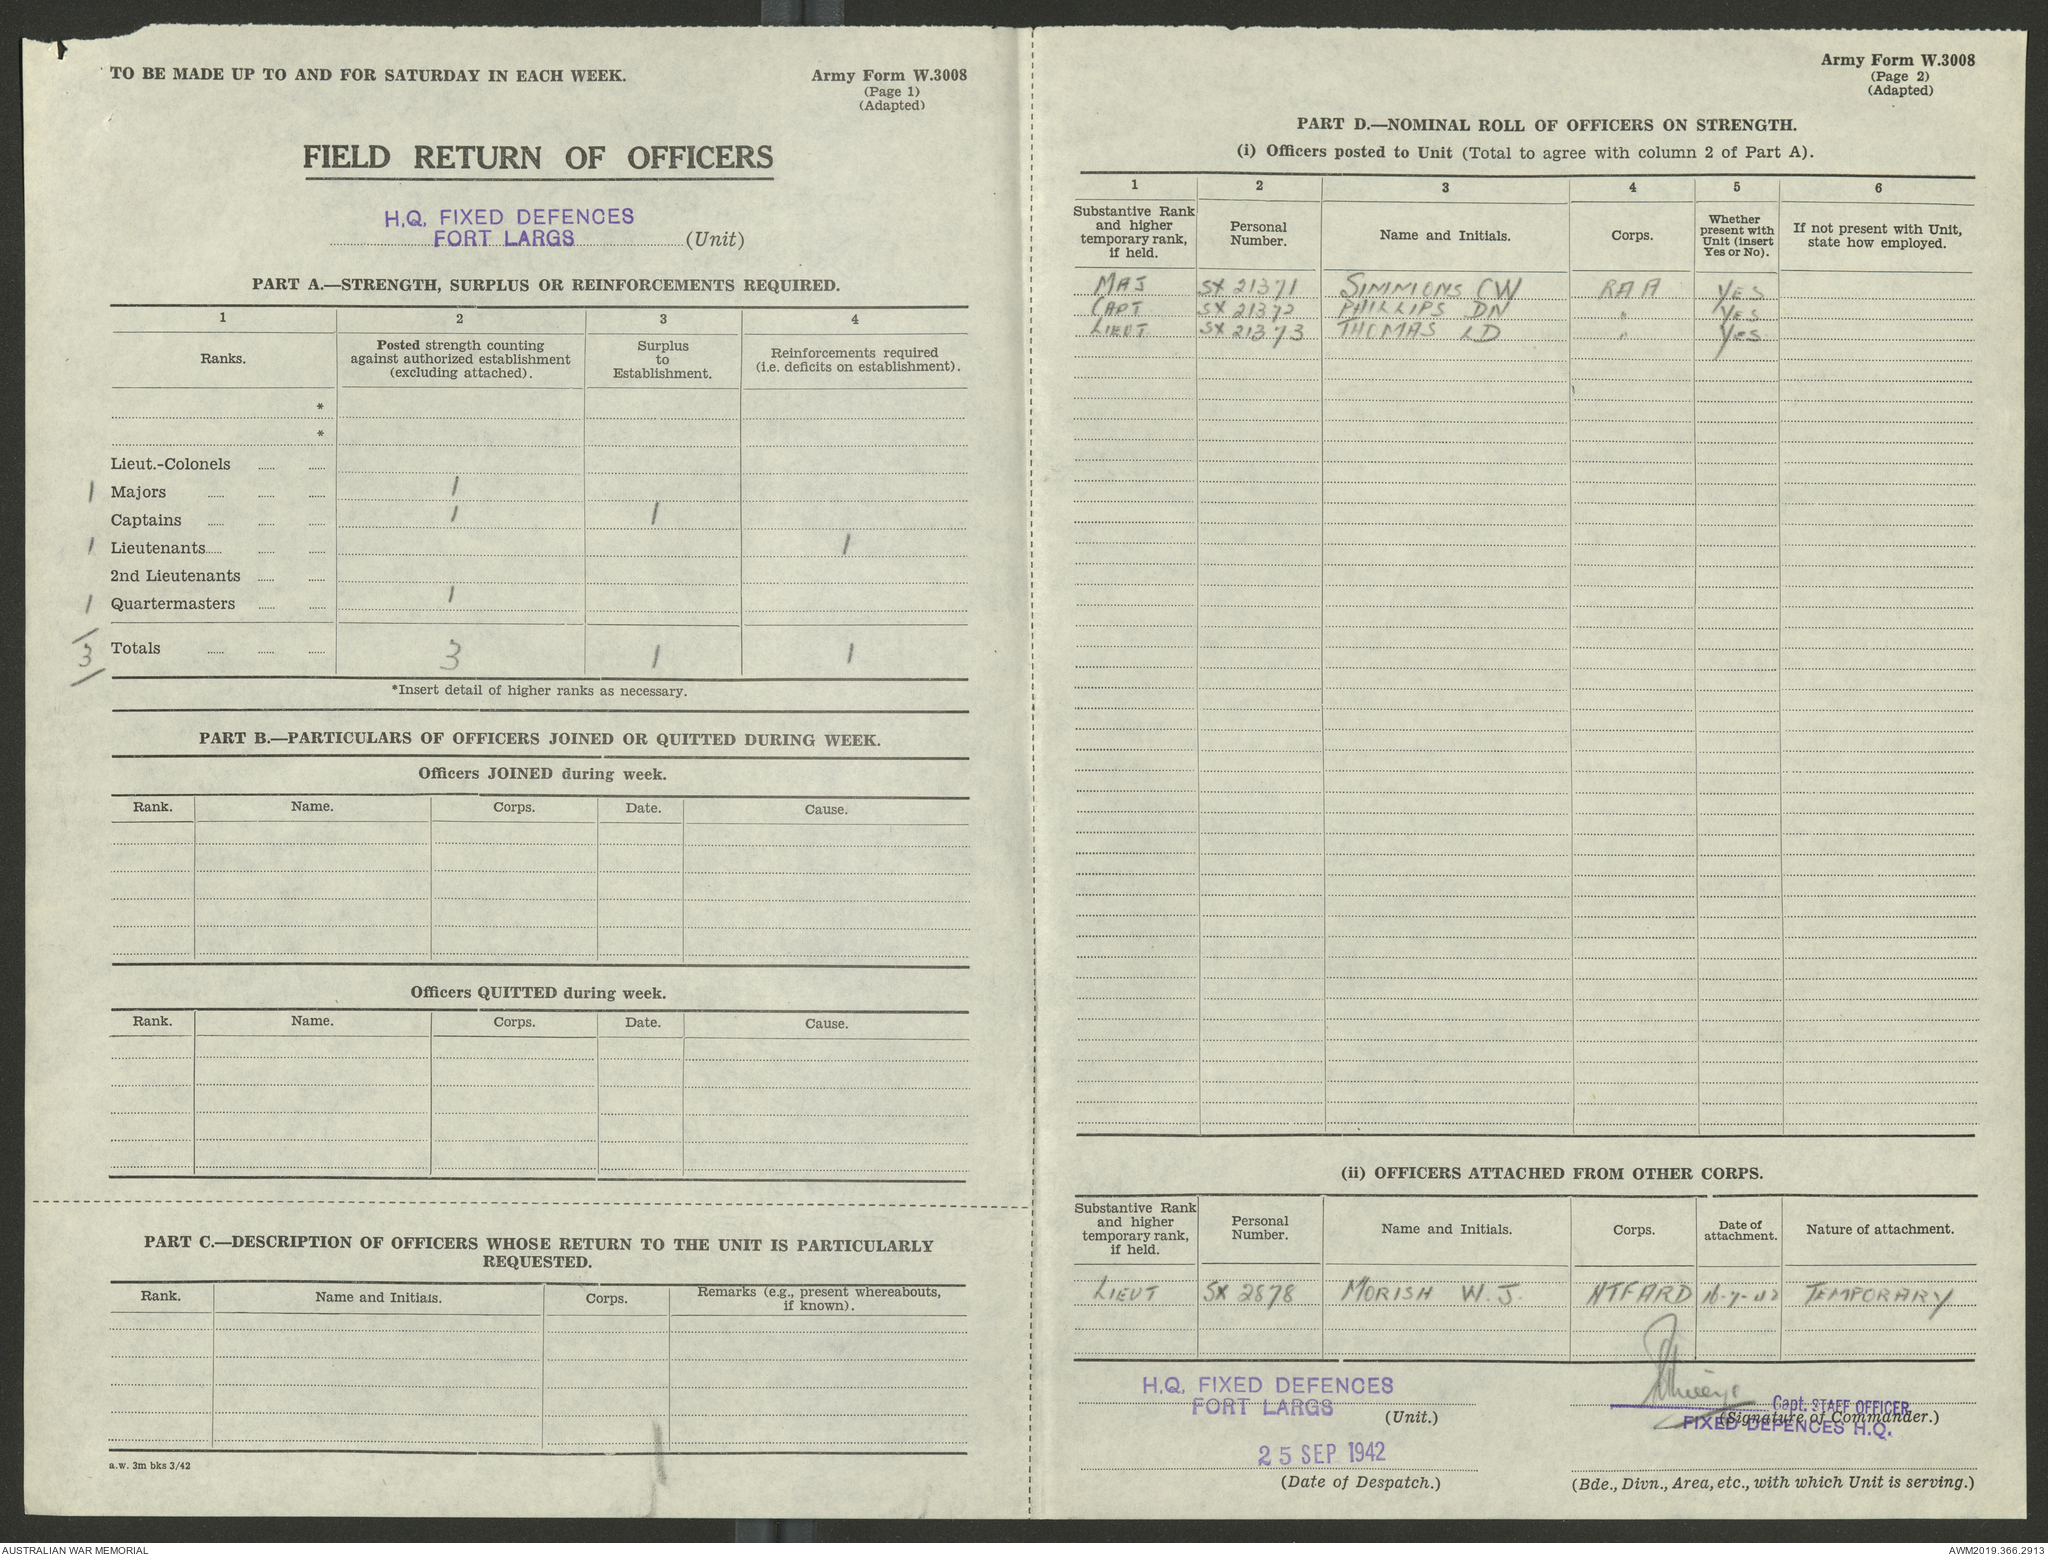 TO BE MADE UP TO AND FOR SATURDAY IN EACH WEEK.
Army Form W.3008
(Page 1)
(Adapted)
FIELD RETURN OF OFFICERS
H.Q. FIXED DEFENCES
FORT LARGS (Unit)
PART A.—STRENGTH, SURPLUS OR REINFORCEMENTS REQUIRED.
1 2 3 4
Ranks.
Posted strength counting against authorized establishment (excluding attached).
Surplus to Establishment.
Reinforcements required (i.e. deficits on establishment).
*
*
Lieut.-Colonels
1 Majors 1
Captains 1 1
1 Lieutenants 1
2nd Lieutenants
1 Quartermasters 1
3 Totals 3 1 1
*Insert detail of higher ranks as necessary.
PART B.—PARTICULARS OF OFFICERS JOINED OR QUITTED DURING WEEK.
Officers JOINED during week.
Rank. Name. Corps. Date. Cause.
Officers QUITTED during week.
Rank. Name. Corps. Date. Cause.
PART C.—DESCRIPTION OF OFFICERS WHOSE RETURN TO THE UNIT IS PARTICULARLY
REQUESTED.
Rank. Name and Initials. Corps. Remarks (e.g., present whereabouts, if known).
a.w. 3m bks 3/42
Army Form W.3008
(Page 2)
(Adapted)
PART D.—NOMINAL ROLL OF OFFICERS ON STRENGTH.
(i) Officers posted to Unit (Total to agree with column 2 of Part A).
1 2 3 4 5 6
Substantive Rank and higher temporary rank, if held.
Personal Number.
Name and Initials.
Corps.
Whether present with Unit (insert Yes or No).
If not present with Unit, state how employed.
MAJ SX 21371 SIMMONS CW RAA YES
CAPT SX 21372 PHILLIPS DN " YES
LIEUT SX 21373 THOMAS LD " Yes
(ii) OFFICERS ATTACHED FROM OTHER CORPS.
Substantive Rank and higher temporary rank, if held.
Personal Number.
Name and Initials.
Corps.
Date of attachment.
Nature of attachment.
LIEUT SX 2878 MORISH W.J. NTFARD 16-7-42 TEMPORARY
H.Q. FIXED DEFENCES
FORT LARGS (Unit.)
Capt. STAFF OFFICER
(Signature of Commander.)
FIXED DEFENCES H.Q.
25 SEP 1942
(Date of Despatch.)
(Bde., Divn., Area, etc., with which Unit is serving.)
AUSTRALIAN WAR MEMORIAL
AWM2019.366.2913